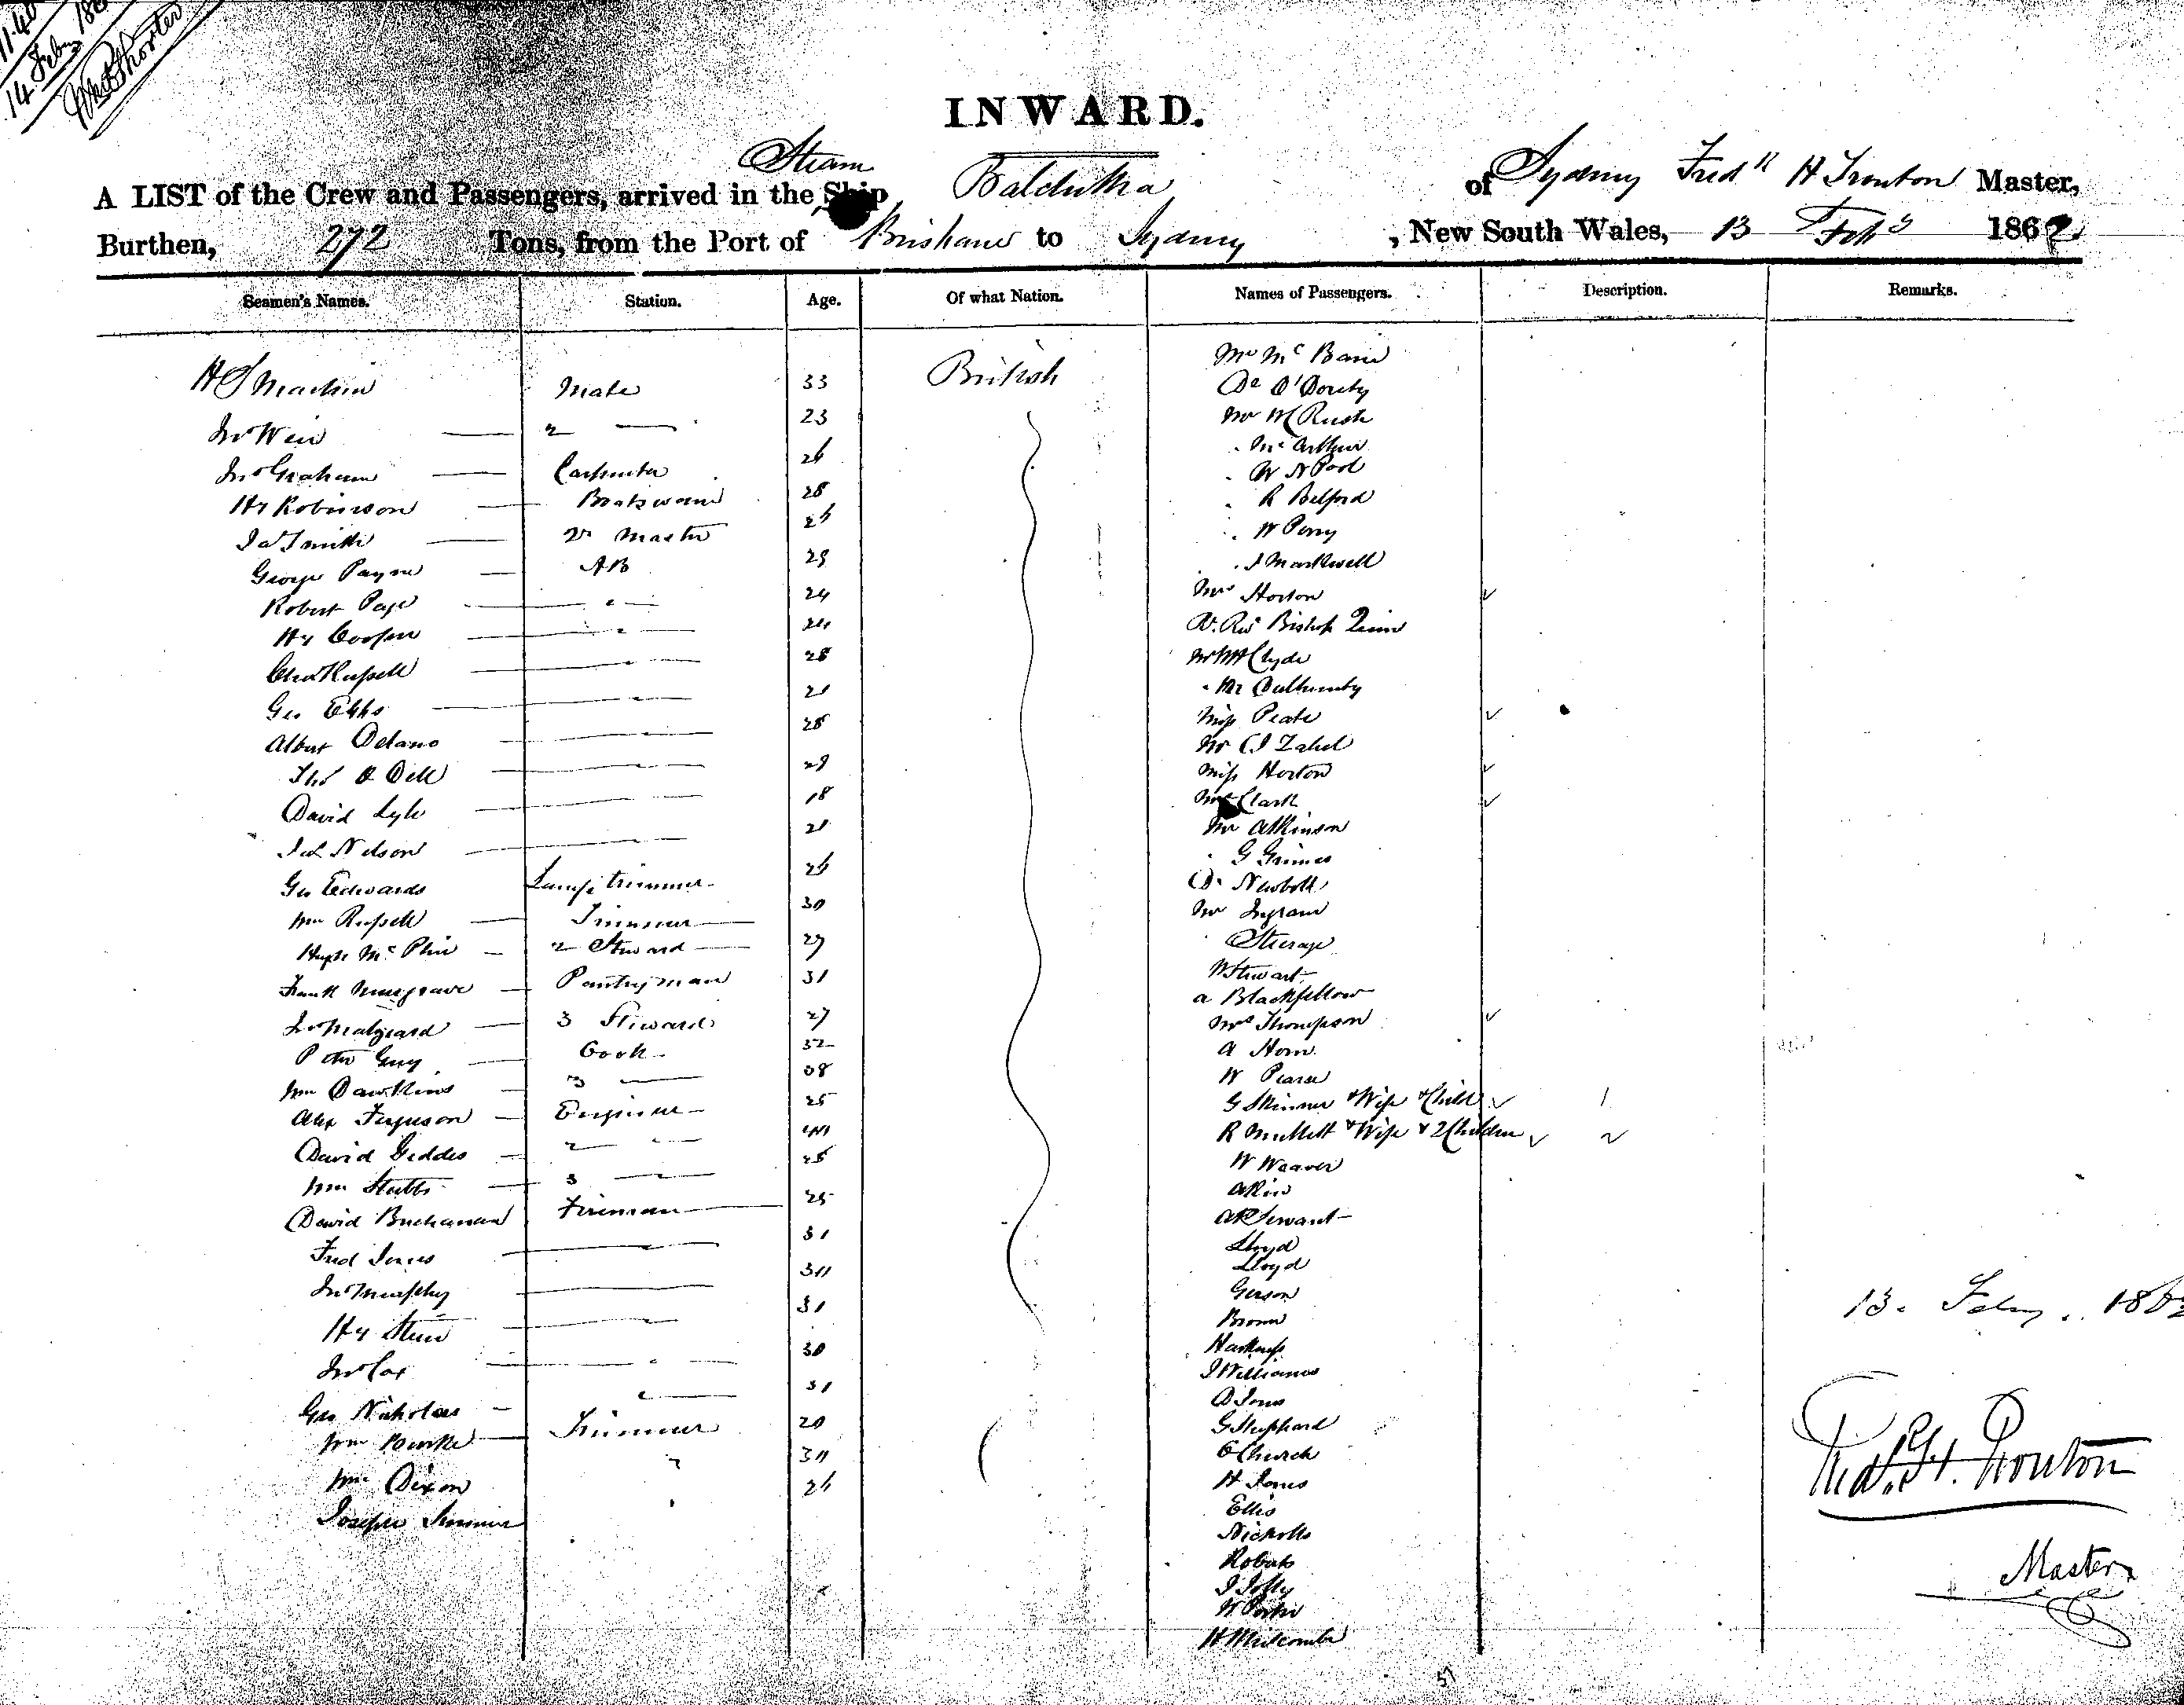 11.40
14 Feby 186
INWARD.
Steam
A LIST of the Crew and Passengers, arrived in the Ship Balclutha of Sydney Fredk H Trouton Master,
Burthen, 272 Tons, from the Port of Brisbane to Sydney , New South Wales, 13 Feby 1862
Seamen's Names. Station. Age. Of what Nation. Names of Passengers. Description. Remarks.
H S Machin Mate 33 British
Jno Weir 2 — 23
Jno Graham Carpenter 26
Hy Robinson Boatswain 28
Jas Smith Qr Master 26
George Payne AB 29
Robert Page " 24
Hy Cooper " 24
Chas Russell " 28
Geo Ebbs 21
Albert Delano 28
Thos O Dell 29
David Lyle 18
Jas Nelson 21
Geo Edwards Lamp trimmer 26
Wm Russell 30
Hugh Mc Phie 2 Steward 29
Frank Musgrave Pantryman 31
Jno 3 Steward 27
Peter Guy Cook 32
Wm Dawkins 38
Alex Ferguson Engineer 25
David Geddes 2 " 40
Wm Stubbs 3 " 28
David Buchanan Fireman 25
Fred Jones 31
Jno Murphy 30
Hy 31
Jno Cox " 30
Geo Nicholas " 31
Wm Bourke Trimmer 20
Wm Dixon " 30
Joseph 26
Mr Mc Bain
Dr O'Doherty
Mr W Rush
" McArthur
" W N Pool
" R Belford
" W Perry
" J Markwell
Mrs Horton ✓
Rt. Revd Bishop Quinn
Mr Clyde
" Mr
Miss Peate ✓
Mr C J Zahel
Miss Horton ✓
Mrs Clark ✓
Mr Atkinson
" G Grimes
Dr Newbold
Mr Ingram
Steerage
W Stewart
a Blackfellow
Mrs Thompson ✓
A Horn
W Pearse
G Skinner & Wife & Child ✓ 1
R Mullett & Wife & 2 Children ✓ 2
W Weaver
A Servant
Lloyd
Lloyd
Gerson
Brown
Harkness
J Williams
D Jones
G Shephard
C Church
H Jones
Ellis
Nicholls
Roberts
J Jolly
W Porter
57
13. Feby. 1862
Fredk. H. Trouton
Master